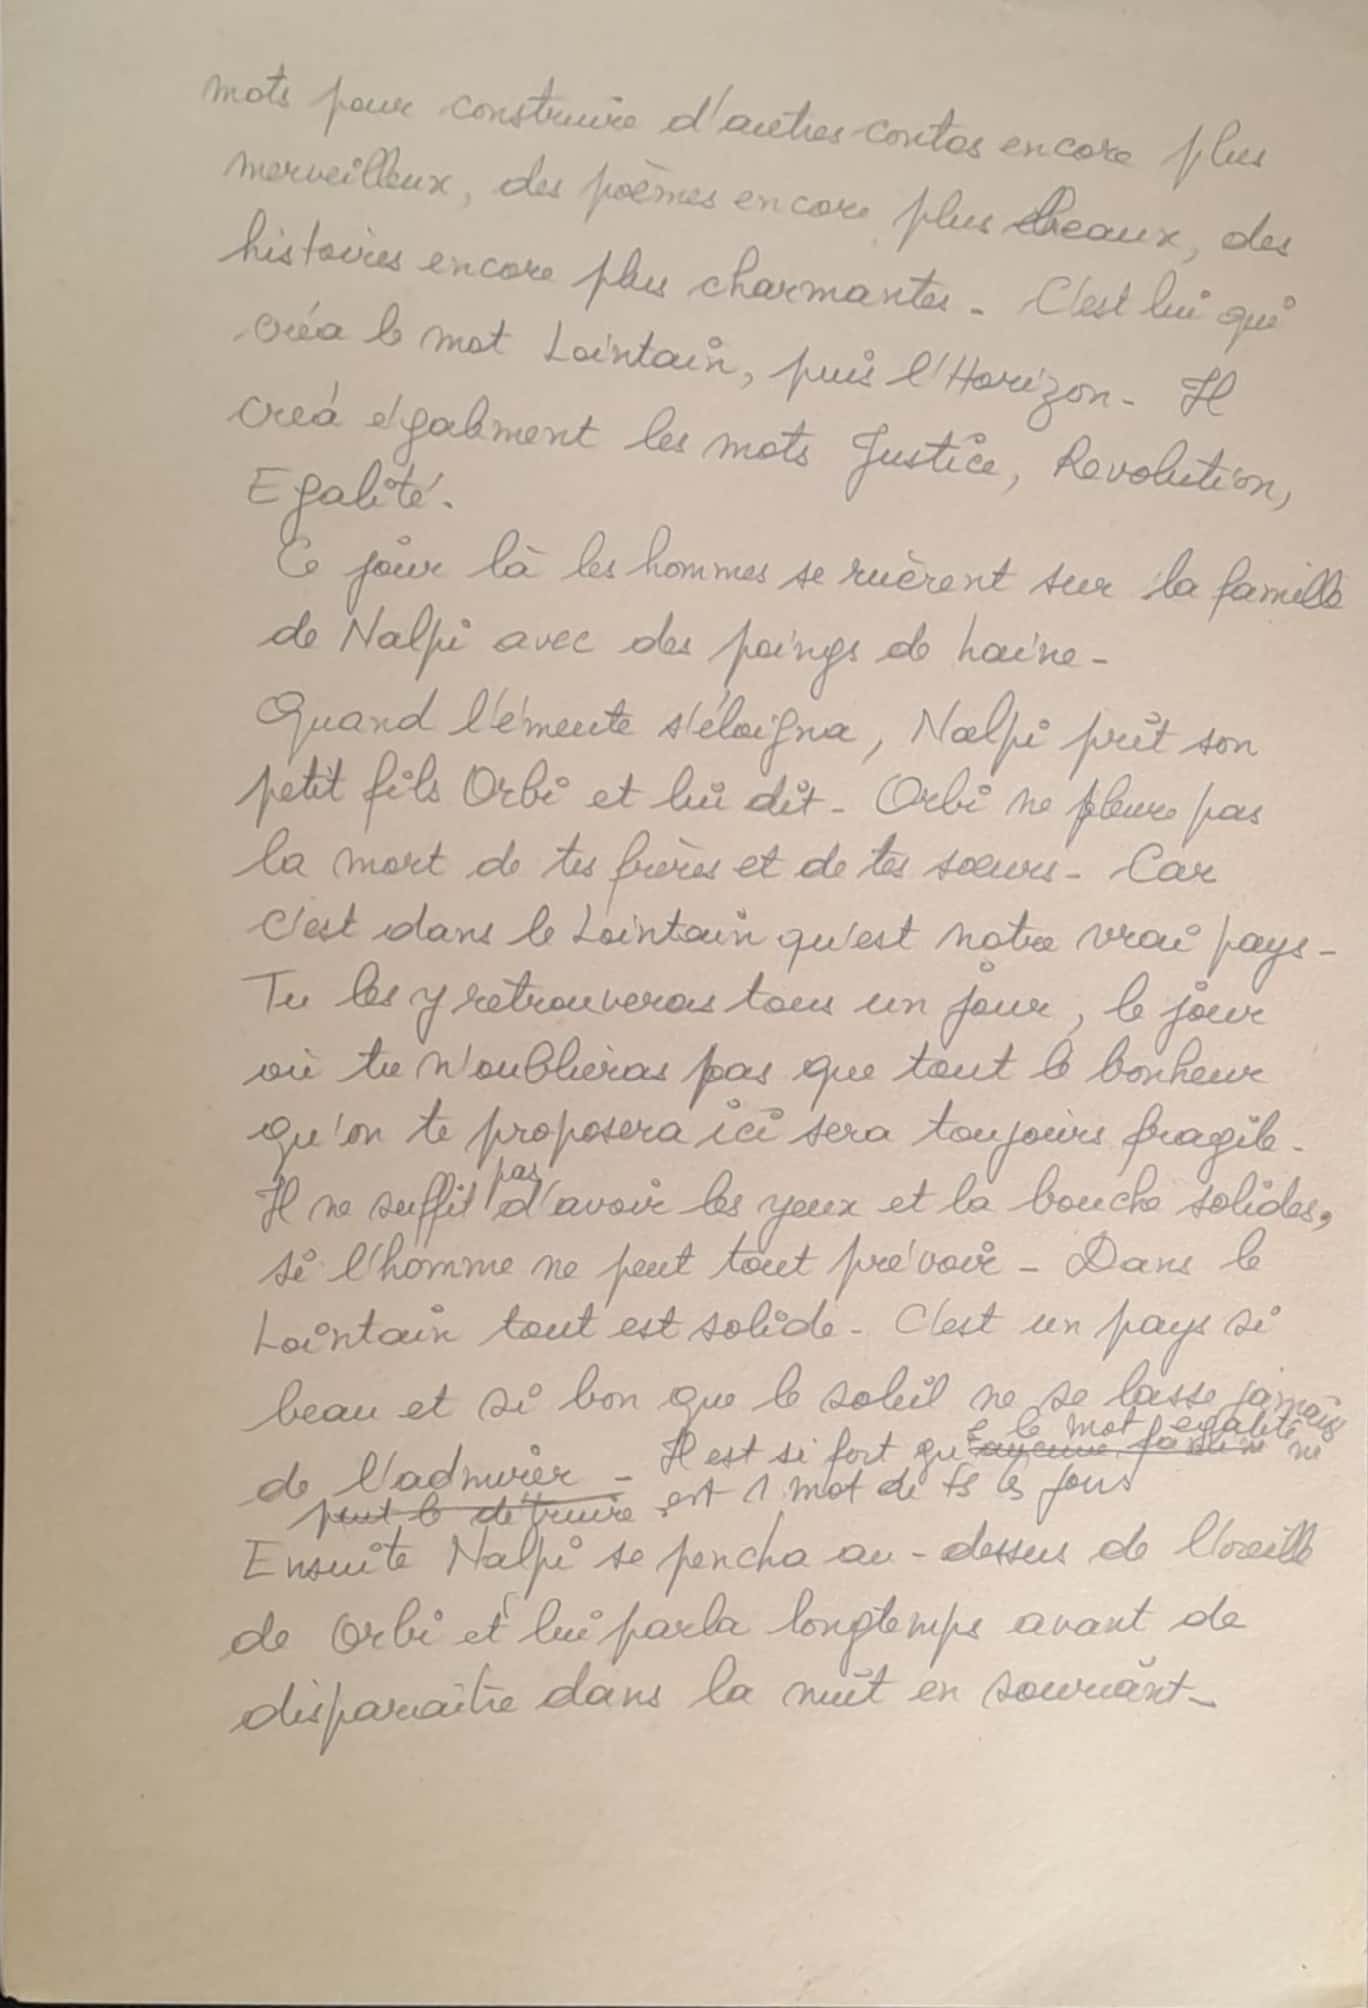 mots pour construire d'autres contes encore plus
merveilleux, des poèmes encore plus beaux, des
histoires encore plus charmantes - C'est lui qui
créa le mot Lointain, puis l'Horizon - Il
créa également les mots Justice, Revolution,
Egalité.
Ce jour là les hommes se ruèrent sur la famille
de Nalpi avec des poings de haine -
Quand l'émeute s'éloigna, Nalpi prit son
petit fils Orbi et lui dit - Orbi ne pleure pas
la mort de tes frères et de tes sœurs - Car
c'est dans le Lointain qu'est notre vrai pays -
Tu les y retrouveras tous un jour, le jour
où tu n'oublieras pas que tout le bonheur
qu'on te proposera ici sera toujours fragile -
Il ne suffit pas d'avoir les yeux et la bouche solides,
si l'homme ne peut tout prévoir - Dans le
Lointain tout est solide - C'est un pays si
beau et si bon que le soleil ne se lasse jamais
e le mot egalité
de l'admirer - Il est si fort qu'aucune ne
peut le détruire est 1 mot de ts les jours
Ensuite Nalpi se pencha au-dessus de l'oreille
de Orbi et lui parla longtemps avant de
disparaître dans la nuit en souriant -